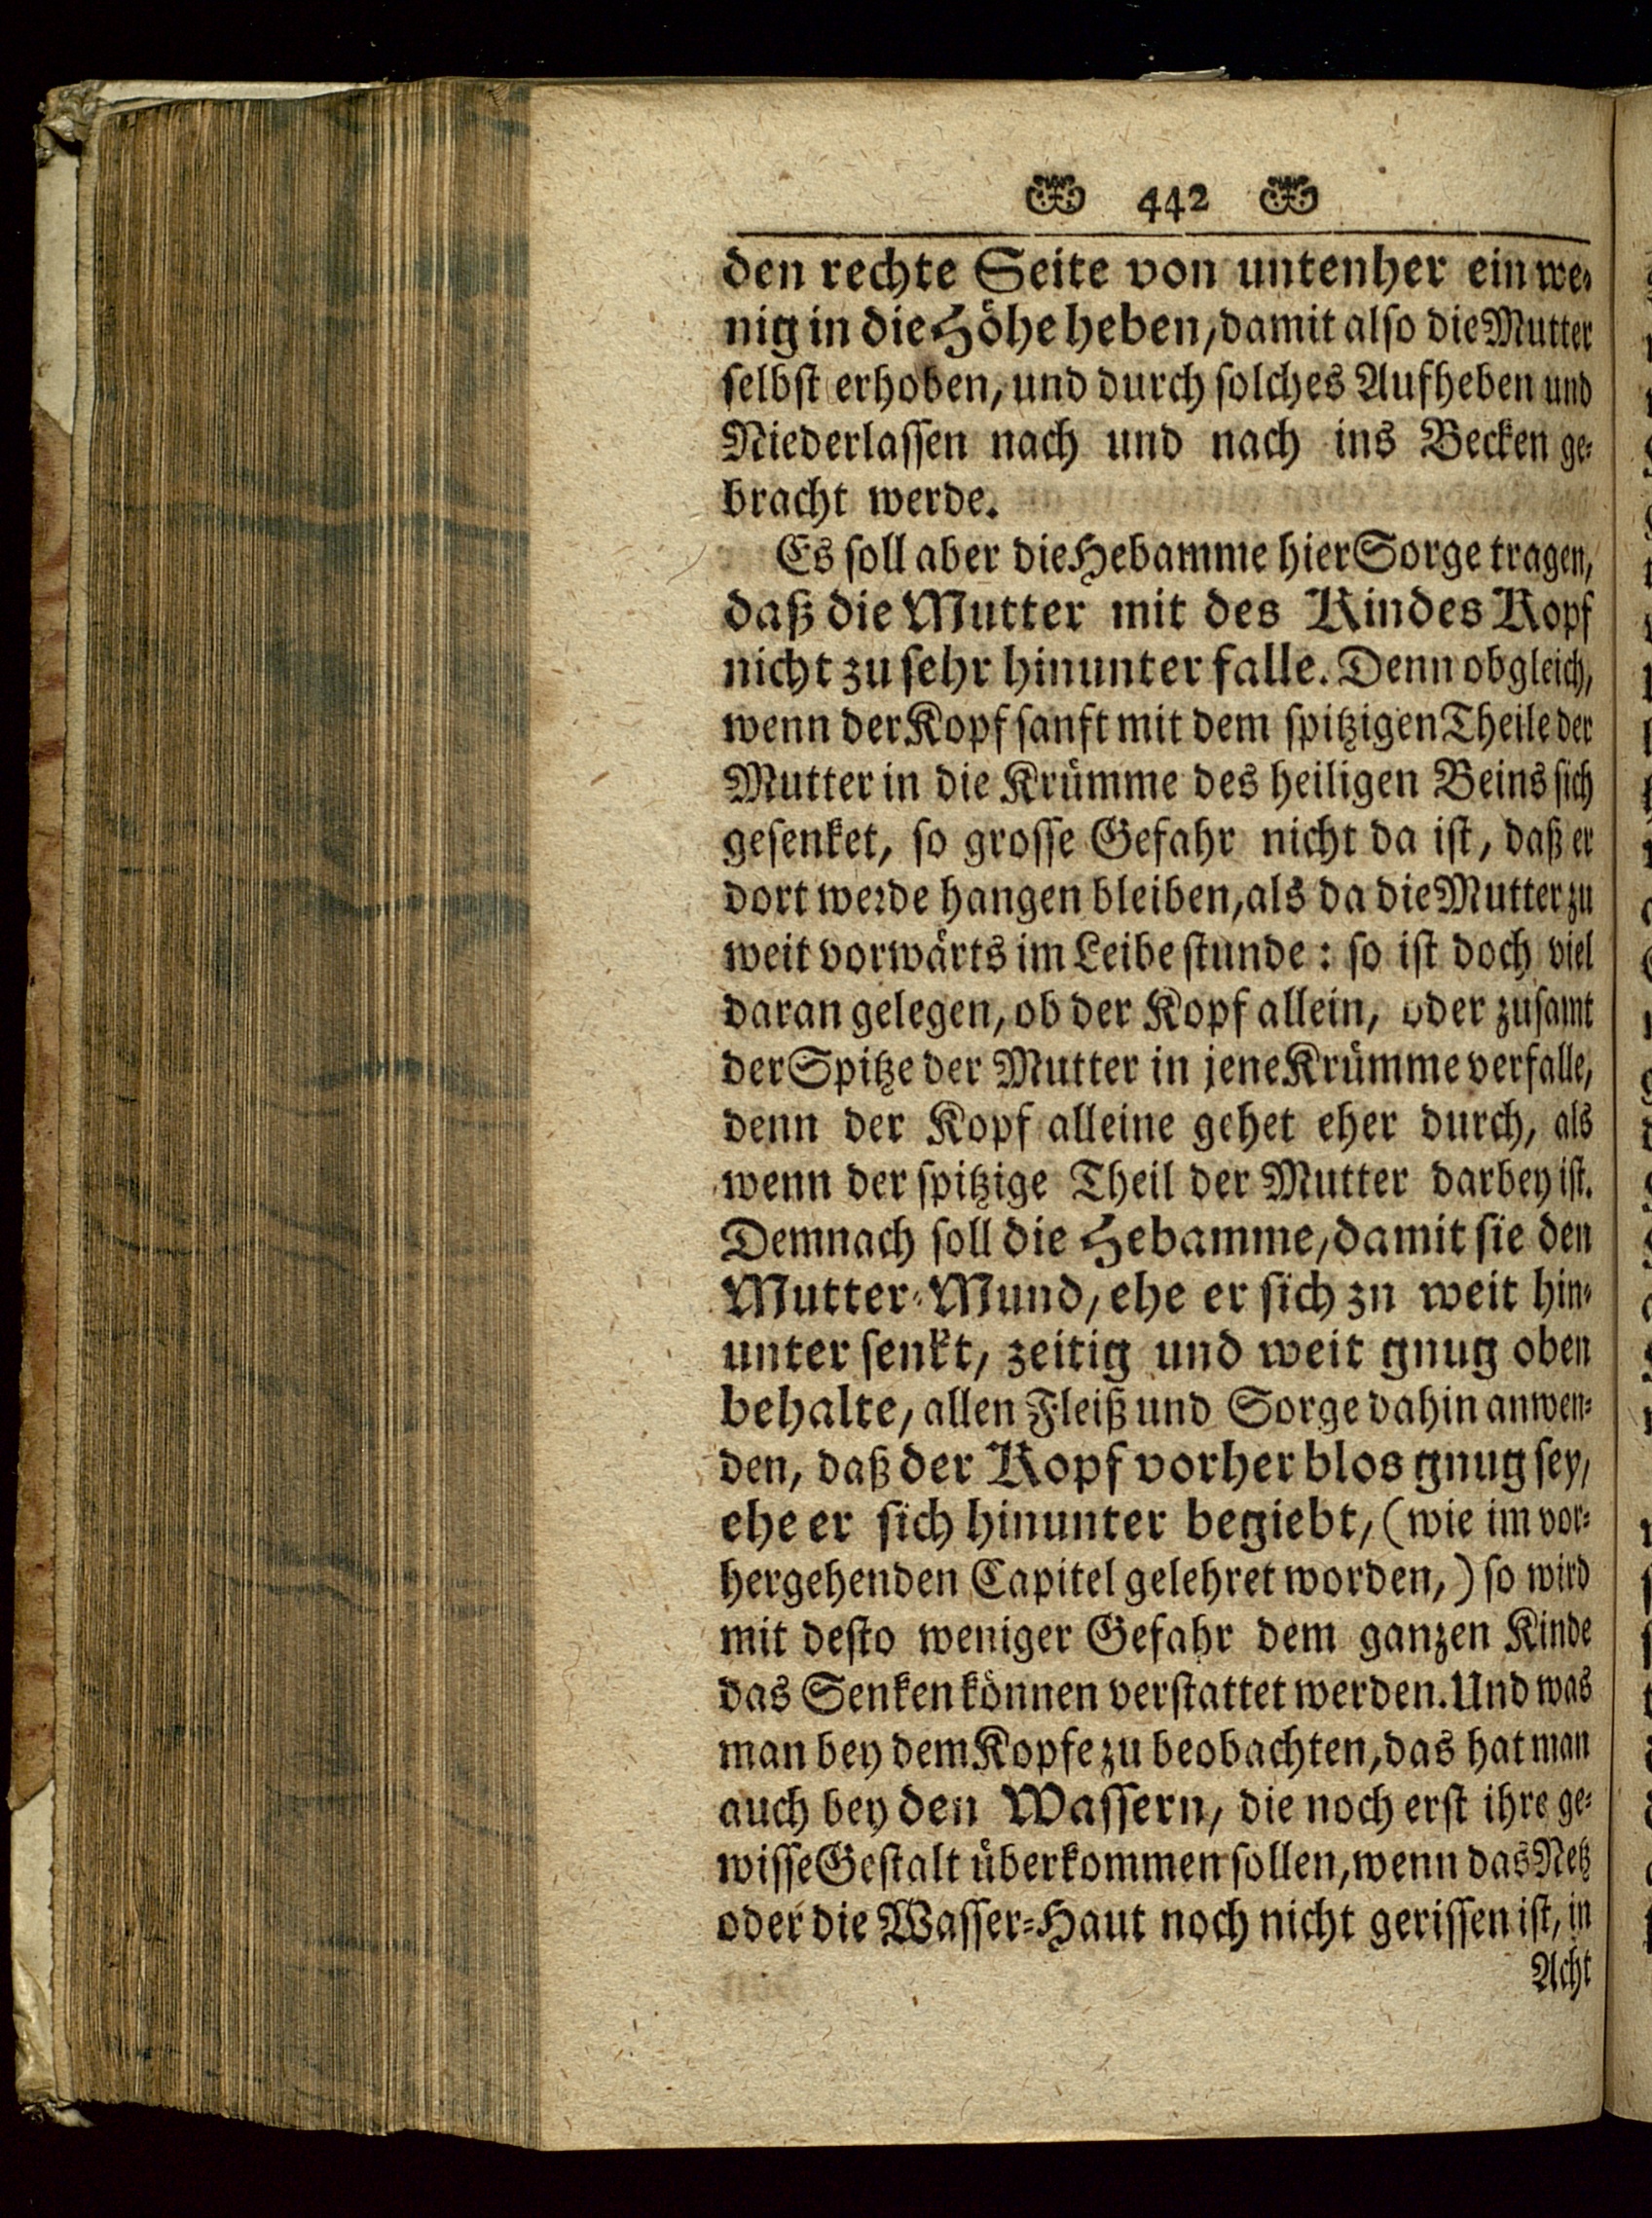 442
den rechte Seite von untenher ein we-
nig in die Höhe heben, damit also die Mutter
selbst erhoben, und durch solches Aufheben und
Niederlassen nach und nach ins Becken ge-
bracht werde.
Es soll aber die Hebamme hier Sorge tragen,
daß die Mutter mit des Kindes Kopf
nicht zu sehr hinunter falle. Denn obgleich,
wenn der Kopf sanft mit dem spitzigen Theile der
Mutter in die Krümme des heiligen Beins sich
gesenket, so grosse Gefahr nicht da ist, daß er
dort werde hangen bleiben, als da die Mutter zu
weit vorwärts im Leibe stunde: so ist doch viel
daran gelegen, ob der Kopf allein, oder zusamt
der Spitze der Mutter in jene Krümme verfalle,
denn der Kopf alleine gehet eher durch, als
wenn der spitzige Theil der Mutter darbey ist.
Demnach soll die Hebamme, damit sie den
Mutter-Mund, ehe er sich zu weit hin-
unter senkt, zeitig und weit gnug oben
behalte, allen Fleiß und Sorge dahin anwen-
den, daß der Kopf vorher blos gnug sey,
ehe er sich hinunter begiebt, (wie im vor-
hergehenden Capitel gelehret worden,) so wird
mit desto weniger Gefahr dem ganzen Kinde
das Senken können verstattet werden. Und was
man bey dem Kopfe zu beobachten, das hat man
auch bey den Wassern, die noch erst ihre ge-
wisse Gestalt überkommen sollen, wenn das Netz
oder die Wasser-Haut noch nicht gerissen ist, in
Acht